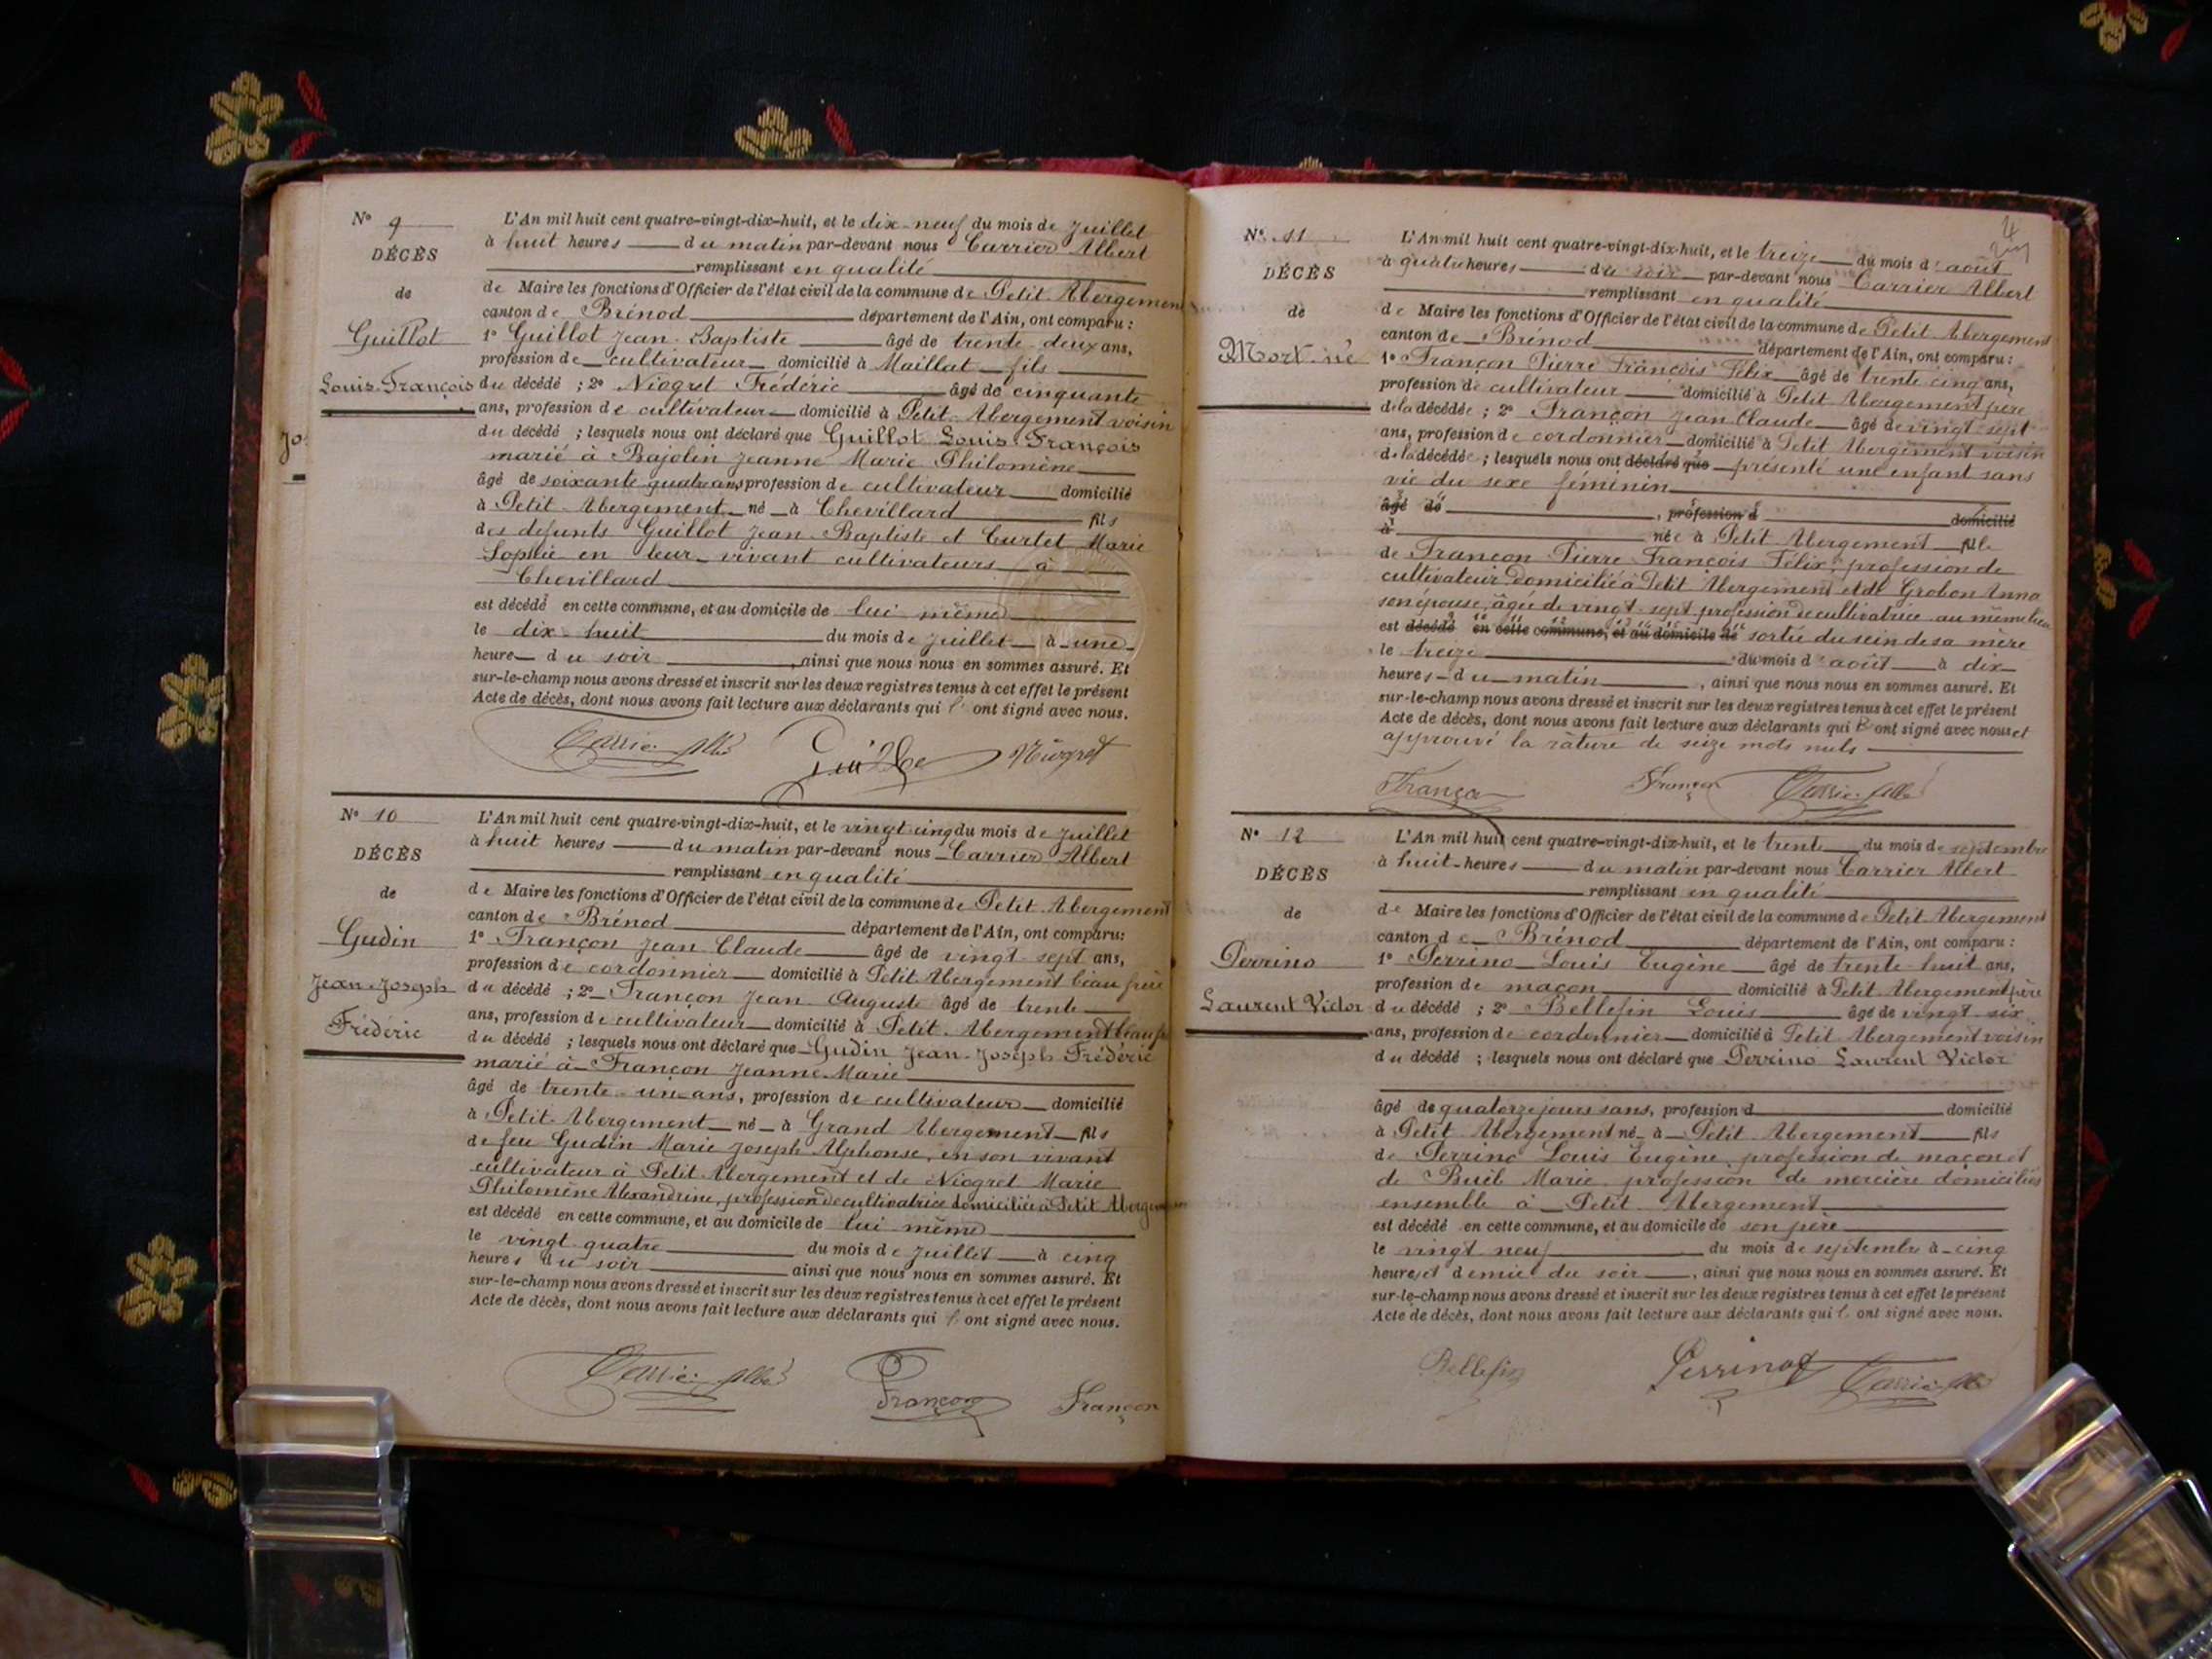 N° 9
DÉCÈS
de
Guillot
Louis-François
L'An mil huit cent quatre-vingt-dix-huit, et le dix-neuf du mois de Juillet
à huit heures du matin par-devant nous Carrier Albert
remplissant en qualité
de Maire les fonctions d'Officier de l'état civil de la commune de Petit-Abergement
canton de Brénod département de l'Ain, ont comparu :
1° Guillot Jean-Baptiste âgé de trente-deux ans,
profession de cultivateur domicilié à Maillat fils
du décédé ; 2° Niogret Frédéric âgé de cinquante
ans, profession de cultivateur domicilié à Petit-Abergement voisin
du décédé ; lesquels nous ont déclaré que Guillot Louis-François
marié à Bajolin Jeanne Marie Philomène
âgé de soixante quatre ans, profession de cultivateur domicilié
à Petit-Abergement né à Chevillard fils
des defunts Guillot Jean-Baptiste et Curtet Marie
Sophie en leur vivant cultivateurs à
Chevillard
est décédé en cette commune, et au domicile de lui même
le dix-huit du mois de Juillet à une
heure du soir, ainsi que nous nous en sommes assuré. Et
sur-le-champ nous avons dressé et inscrit sur les deux registres tenus à cet effet le présent
Acte de décès, dont nous avons fait lecture aux déclarants qui l' ont signé avec nous.
Niogret
N° 10
DÉCÈS
de
Gudin
Jean-Joseph
Frédéric
L'An mil huit cent quatre-vingt-dix-huit, et le vingt cinq du mois de Juillet
à huit heures du matin par-devant nous Carrier Albert
remplissant en qualité
de Maire les fonctions d'Officier de l'état civil de la commune de Petit-Abergement
canton de Brénod département de l'Ain, ont comparu:
1° Françon Jean Claude âgé de vingt-sept ans,
profession de cordonnier domicilié à Petit-Abergement beau frère
du décédé ; 2° Françon Jean Auguste âgé de trente
ans, profession de cultivateur domicilié à Petit-Abergement
du décédé ; lesquels nous ont déclaré que Gudin Jean-Joseph Frédéric
marié à Françon Jeanne-Marie
âgé de trente-un ans, profession de cultivateur domicilié
à Petit-Abergement né à Grand Abergement fils
de feu Gudin Marie Joseph Alphonse, en son vivant
cultivateur à Petit-Abergement et de Niogret Marie
Philomène Alexandrine, profession de cultivatrice domiciliée à Petit Abergement
est décédé en cette commune, et au domicile de lui-même
le vingt-quatre du mois de Juillet à cinq
heures du soir ainsi que nous nous en sommes assuré. Et
sur-le-champ nous avons dressé et inscrit sur les deux registres tenus à cet effet le présent
Acte de décès, dont nous avons fait lecture aux déclarants qui l' ont signé avec nous.
Françon Françon
N° 11
DÉCÈS
de
Mort-né
L'An mil huit cent quatre-vingt-dix-huit, et le treize du mois d'août
à quatre heures du soir par-devant nous Carrier Albert
remplissant en qualité
de Maire les fonctions d'Officier de l'état civil de la commune de Petit-Abergement
canton de Brénod département de l'Ain, ont comparu :
1° Françon Pierre François Félix âgé de trente cinq ans,
profession de cultivateur domicilié à Petit Abergement père
de la décédée ; 2° Françon Jean Claude âgé de vingt-sept
ans, profession de cordonnier domicilié à Petit Abergement voisin
de la décédée ; lesquels nous ont déclaré que présenté une enfant sans
vie du sexe féminin
âgé de , profession d domicilié
à née à Petit Abergement fille
de Françon Pierre François Félix, profession de
cultivateur domicilié à Petit Abergement et de Grobon Anna
son épouse, âgée de vingt-sept profession de cultivatrice au même lieu
est décédé en cette commune, et au domicile de sortie du sein de sa mère
le treize du mois d'août à dix
heures du matin, ainsi que nous nous en sommes assuré. Et
sur-le-champ nous avons dressé et inscrit sur les deux registres tenus à cet effet le présent
Acte de décès, dont nous avons fait lecture aux déclarants qui l'ont signé avec nous et
approuvé la râture de seize mots nuls
N° 12
DÉCÈS
de
Perrino
Laurent Victor
L'An mil huit cent quatre-vingt-dix-huit, et le trente du mois de septembre
à huit heures du matin par-devant nous Carrier Albert
remplissant en qualité
de Maire les fonctions d'Officier de l'état civil de la commune de Petit-Abergement
canton de Brénod département de l'Ain, ont comparu :
1° Perrino Louis Eugène âgé de trente-huit ans,
profession de maçon domicilié à Petit-Abergement père
du décédé ; 2° Bellefin Louis âgé de vingt-six
ans, profession de cordonnier domicilié à Petit Abergement voisin
du décédé ; lesquels nous ont déclaré que Perrino Laurent Victor
âgé de quatorze jours ans, profession d domicilié
à Petit Abergement né à Petit Abergement fils
de Perrino Louis Eugène, profession de maçon et
de Bueb Marie profession de mercière domiciliés
ensemble à Petit Abergement
est décédé en cette commune, et au domicile de son père
le vingt neuf du mois de septembre à cinq
heures et demie du soir, ainsi que nous nous en sommes assuré. Et
sur-le-champ nous avons dressé et inscrit sur les deux registres tenus à cet effet le présent
Acte de décès, dont nous avons fait lecture aux déclarants qui l' ont signé avec nous.
Bellefin